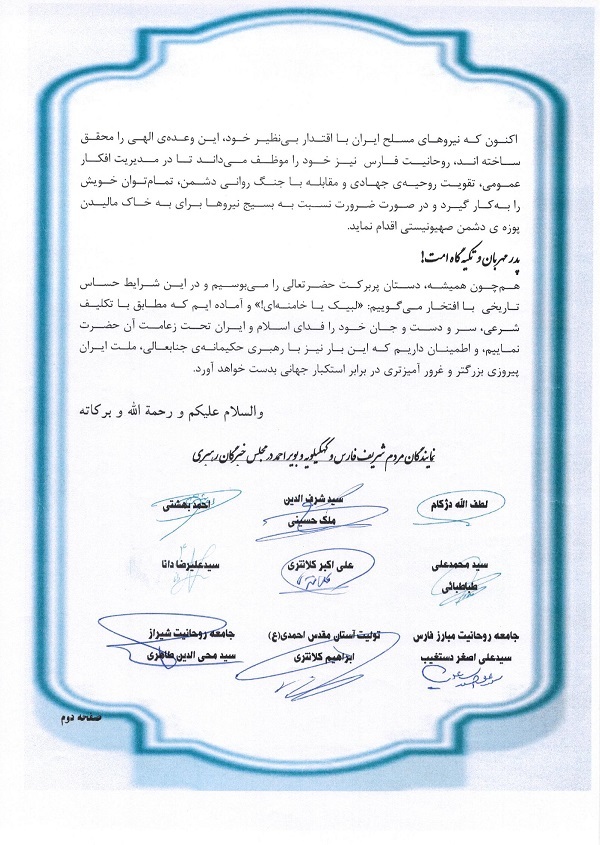 اکنون که نیروهای مسلح ایران با اقتدار بی‌نظیر خود، این وعده‌ی الهی را محقق
ساخته اند، روحانیت فارس نیز خود را موظف می‌داند تا در مدیریت افکار
عمومی، تقویت روحیه‌ی جهادی و مقابله با جنگ روانی دشمن، تمام‌توان خویش
را به‌کار گیرد و در صورت ضرورت نسبت به بسیج نیروها برای به خاک مالیدن
پوزه ی دشمن صهیونیستی اقدام نماید.
پدر مهربان و تکیه گاه امت!
هم‌چون همیشه، دستان پربرکت حضرتعالی را می‌بوسیم و در این شرایط حساس
تاریخی با افتخار می‌گوییم: «لبیک یا خامنه‌ای!» و آماده ایم که مطابق با تکلیف
شرعی، سر و دست و جان خود را فدای اسلام و ایران تحت زعامت آن حضرت
نماییم، و اطمینان داریم که این بار نیز با رهبری حکیمانه‌ی جنابعالی، ملت ایران
پیروزی بزرگتر و غرور آمیزتری در برابر استکبار جهانی بدست خواهد آورد.
والسلام علیکم و رحمة الله و برکاته
نمایندگان مردم شریف فارس و کهگیلویه و بویراحمد در مجلس خبرگان رهبری
لطف الله دژکام
سید شرف الدین
ملک حسینی
احمد بهشتی
سید محمدعلی
طباطبائی
علی اکبر کلانتری
سیدعلیرضا دانا
جامعه روحانیت مبارز فارس
سیدعلی اصغر دستغیب
تولیت آستان مقدس احمدی(ع)
ابراهیم کلانتری
جامعه روحانیت شیراز
سید محی الدین طاهری
صفحه دوم